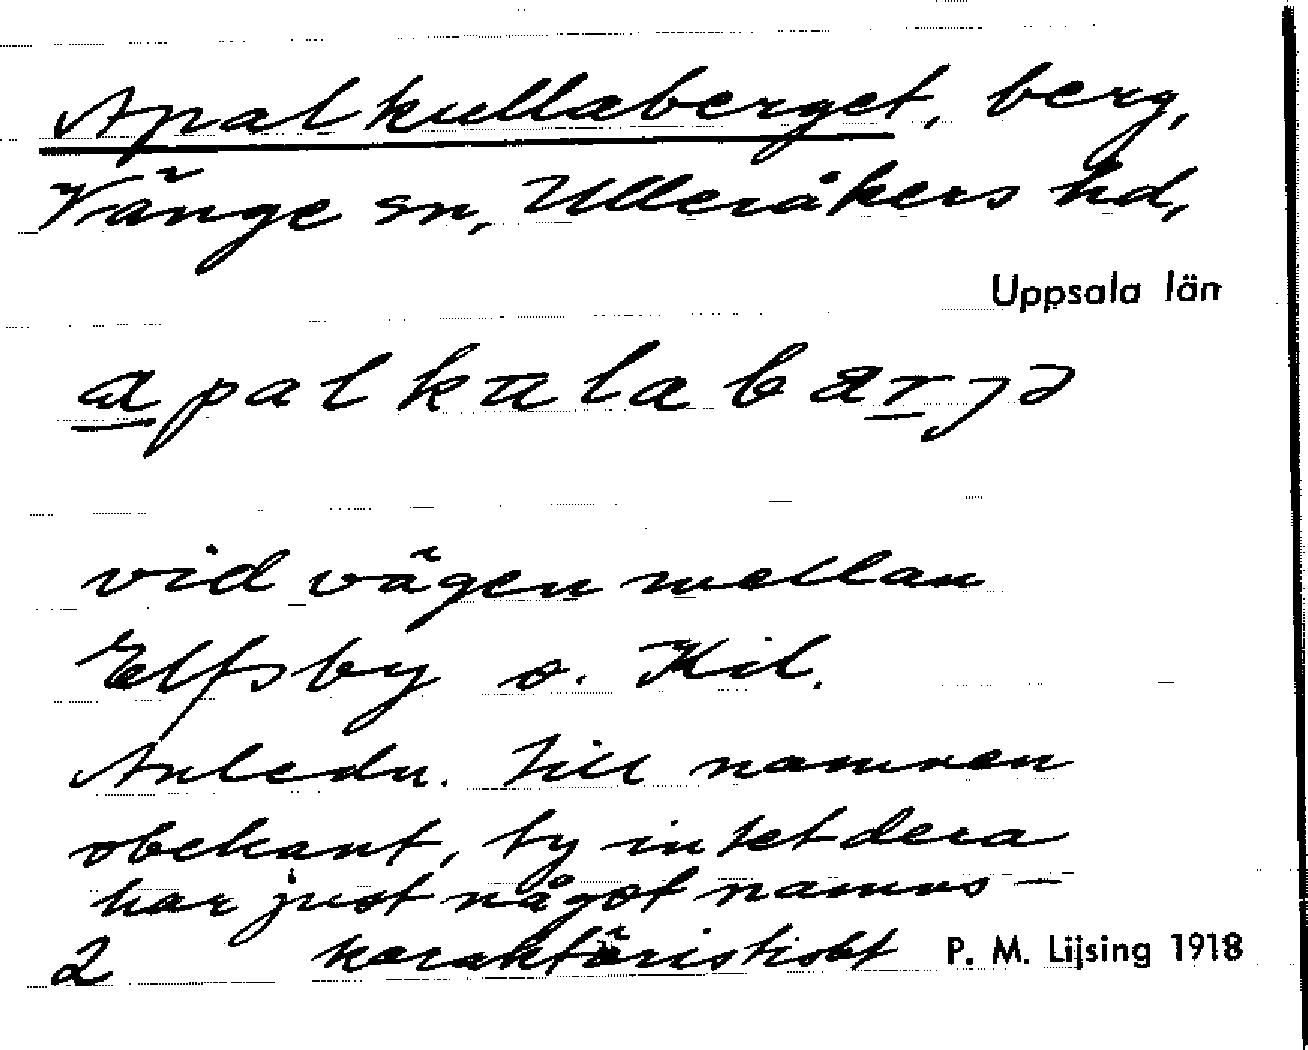 Apalkullaberget, berg,
Vänge sn, Ulleråkers hd,
Uppsala län
apalkulabärjə
vid vägen mellan
Elfsby o. Kil.
Anledn. till namnen
obekant, ty intetdera
har just något namns-
2 karaktäristiskt P. M. Lijsing 1918